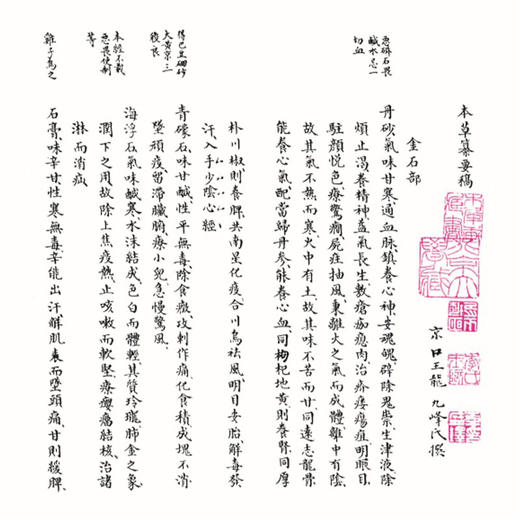 本草纂要稿
京口王龍 九峰氏撰
金石部
惡磁石畏
鹹水忌一
切血
丹砂氣味甘寒通血脉鎮養心神安魂魄辟除鬼祟生津液除
煩止渴養精神益氣長生敷瘡痂瘜肉治疥瘻瘍疽明眼目
駐顏悅色療驚癇屍疰抽風稟離火之氣而成體離中有陰
故其氣不熱而寒火中有土故其味不苦而甘同遠志龍骨
能養心氣配當歸丹參能養心血同枸杞地黃則養腎同厚
朴川椒則養脾共南星化痰合川烏祛風明目安胎解毒發
汗入手少陰心經
得巴豆硇砂
大黃京三
後良
青礞石味甘鹹性平無毒除食癥攻刺作痛化食積成塊不消
墜頑痰留滯臟腑療小兒急慢驚風
本經不載
惡畏使制
等
海浮石氣味鹹寒水沫結成色白而體輕其質玲瓏肺金之象
潤下之用故除上焦痰熱止咳嗽而軟堅療癭瘤結核治諸
淋而消疝
雞子為之
石膏味辛甘性寒無毒辛能出汗解肌表而墜頭痛甘則緩脾